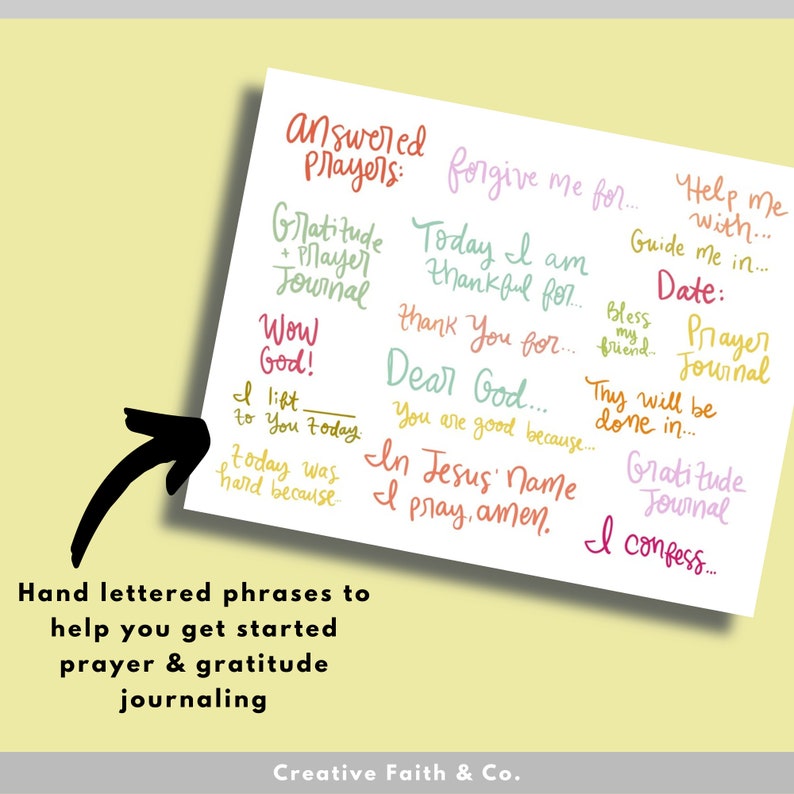 answered
prayers:
forgive me for...
Help me
with...
Gratitude
+ prayer
Journal
Today I am
thankful for...
Guide me in...
Date:
Wow
God!
thank You for...
Bless
my
friend...
Prayer
Journal
I lift ______
to You today.
Dear God...
You are good because...
Thy will be
done in...
today was
hard because...
In Jesus' Name
I pray, amen.
Gratitude
Journal
I confess...
Hand lettered phrases to
help you get started
prayer & gratitude
journaling
Creative Faith & Co.